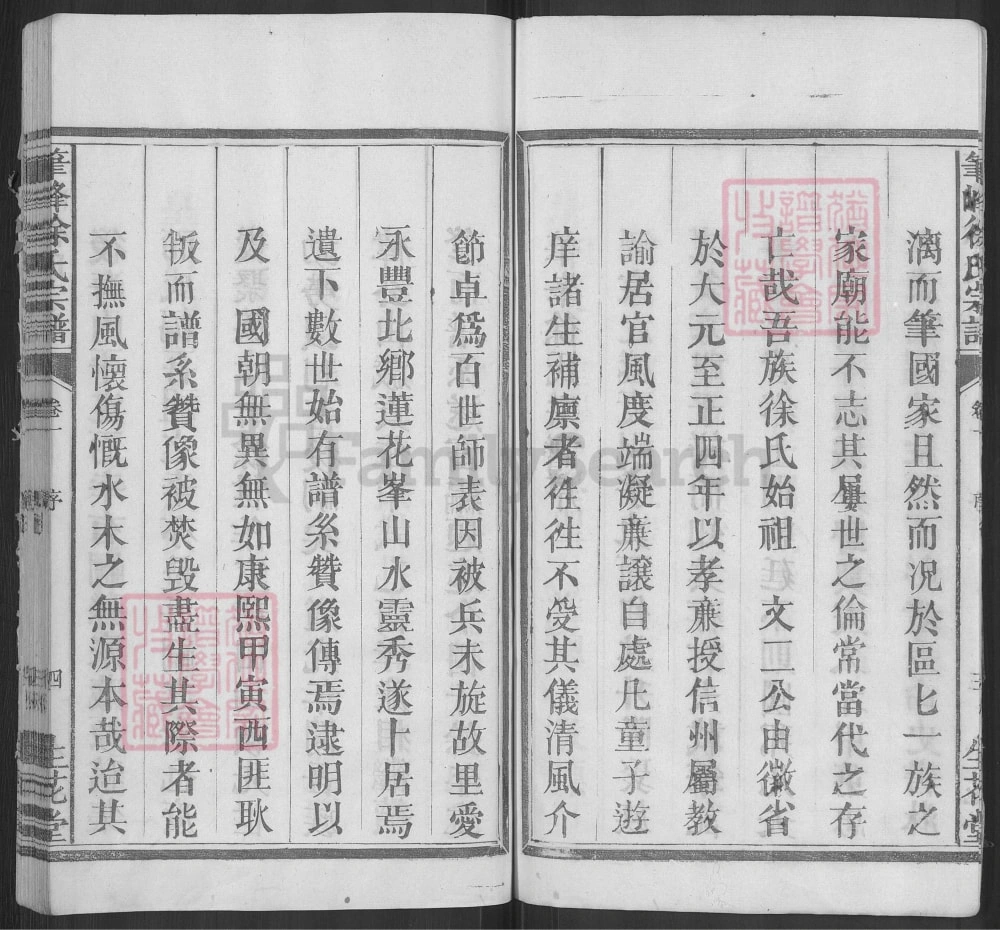 筆峰徐氏宗譜
生花堂
漓而筆國家且然而況於區匕一族之
家廟能不志其屢世之倫常當代之存
亡哉吾族徐氏始祖 文一公由徽省
於大元至正四年以孝亷授信州屬教
諭居官風度端凝亷讓自處凡童子遊
庠諸生補廪者徃徃不受其儀清風介
節卓為百世師表因被兵未旋故里愛
永豐北鄉蓮花峯山水靈秀遂卜居焉
遺下數世始有譜系贊像傳焉逮明以
及 國朝無異無如康熙甲寅西匪耿
叛而譜系贊像被焚毁盡生其際者能
不撫風懷傷慨水木之無源本哉迨其
筆峰徐氏宗譜
卷一
序
四
生花堂
FamilySearch